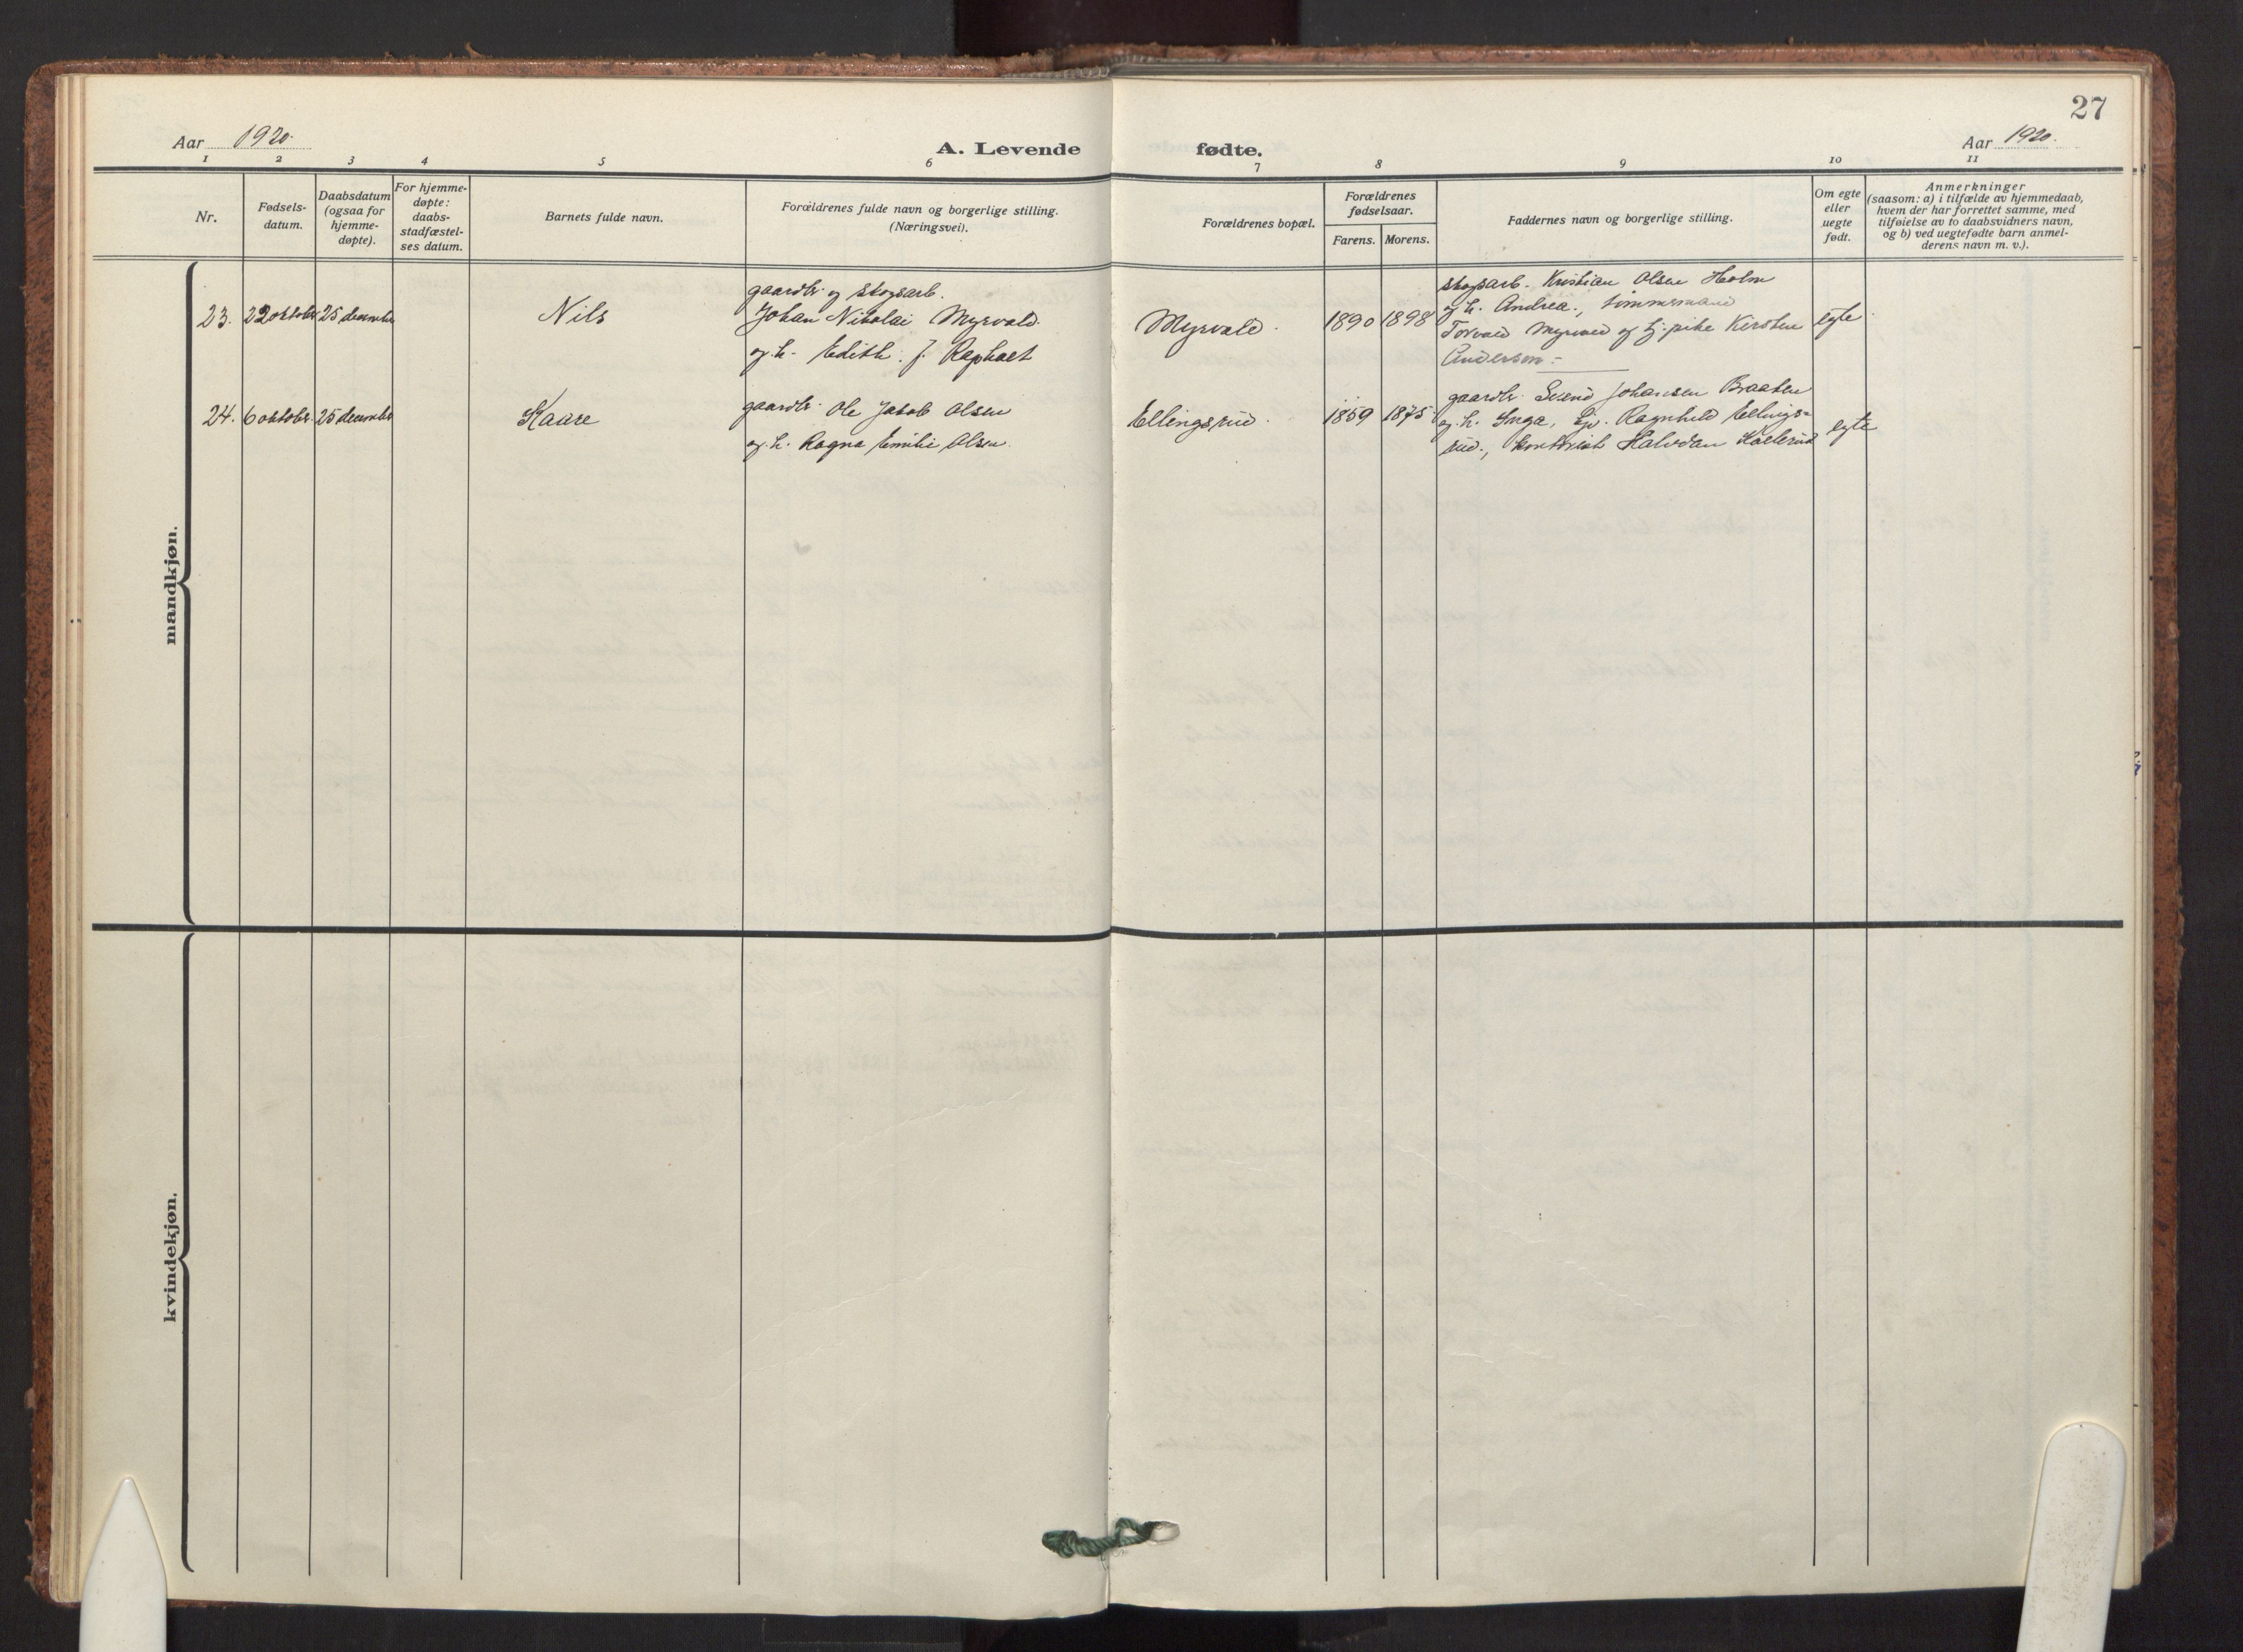 27
Aar 1920.
A. Levende fødte.
Aar 1920.
1 2 3 4 5 6 7 8 9 10 11
Nr.
Fødsels-
datum.
Daabsdatum
(ogsaa for
hjemme-
døpte).
For hjemme-
døpte:
daabs-
stadfæstel-
ses datum.
Barnets fulde navn.
Forældrenes fulde navn og borgerlige stilling.
(Næringsvei).
Forældrenes bopæl.
Forældrenes
fødselsaar.
Farens. Morens.
Faddernes navn og borgerlige stilling.
Om egte
eller
uegte
født.
Anmerkninger
(saasom: a) i tilfælde av hjemmedaab,
hvem der har forrettet samme, med
tilføielse av to daabsvidners navn,
og b) ved uegtefødte barn anmel-
derens navn m. v.).
mandkjøn.
23. 22 oktober 25 december
Nils
gaardbr. og skogsarb.
Johan Nikolai Myrvald.
og h. Edith f. Raphael
Myrvald.
1890 1898
skogsarb. Kristian Olsen Holm
og h. Andrea., tømmermand
Torvald Myrvold og tj. pike Kirsten
Anderson.-
egte
24. 6 oktober. 25 december
Kaare
gaardbr. Ole Jakob Olsen
og h. Ragna Emilie Olsen.
Ellingsrud.
1859 1875
gaardbr. Svend Johansen Braaten
og h. Inga, Ragnhild Ellings-
rud., kontorist Halvdan
egte
kvindekjøn.